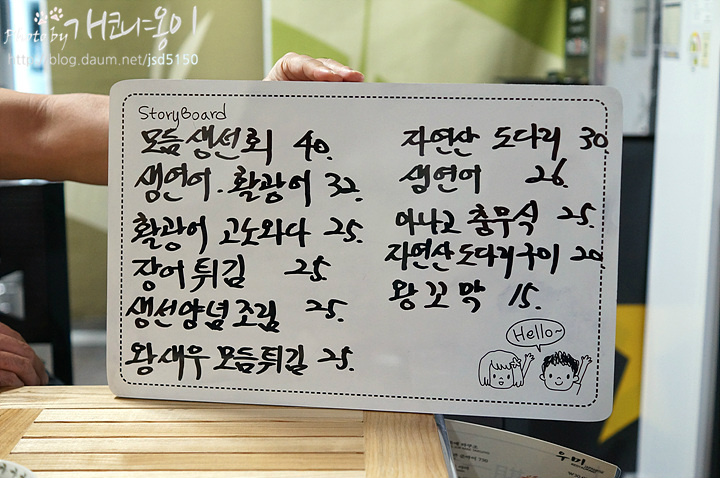 Photo by 개코냐옹이
http://blog.daum.net/jsd5150
StoryBoard
모듬생선회 40.
생연어.활광어 32.
활광어 고노와다 25.
장어튀김 25
생선양념조림 25.
왕새우 모듬튀김 25.
자연산 도다리 30.
생연어 26.
아나고 충무식 25.
자연산도다리구이 20.
왕꼬막 15.
Hello~
우미